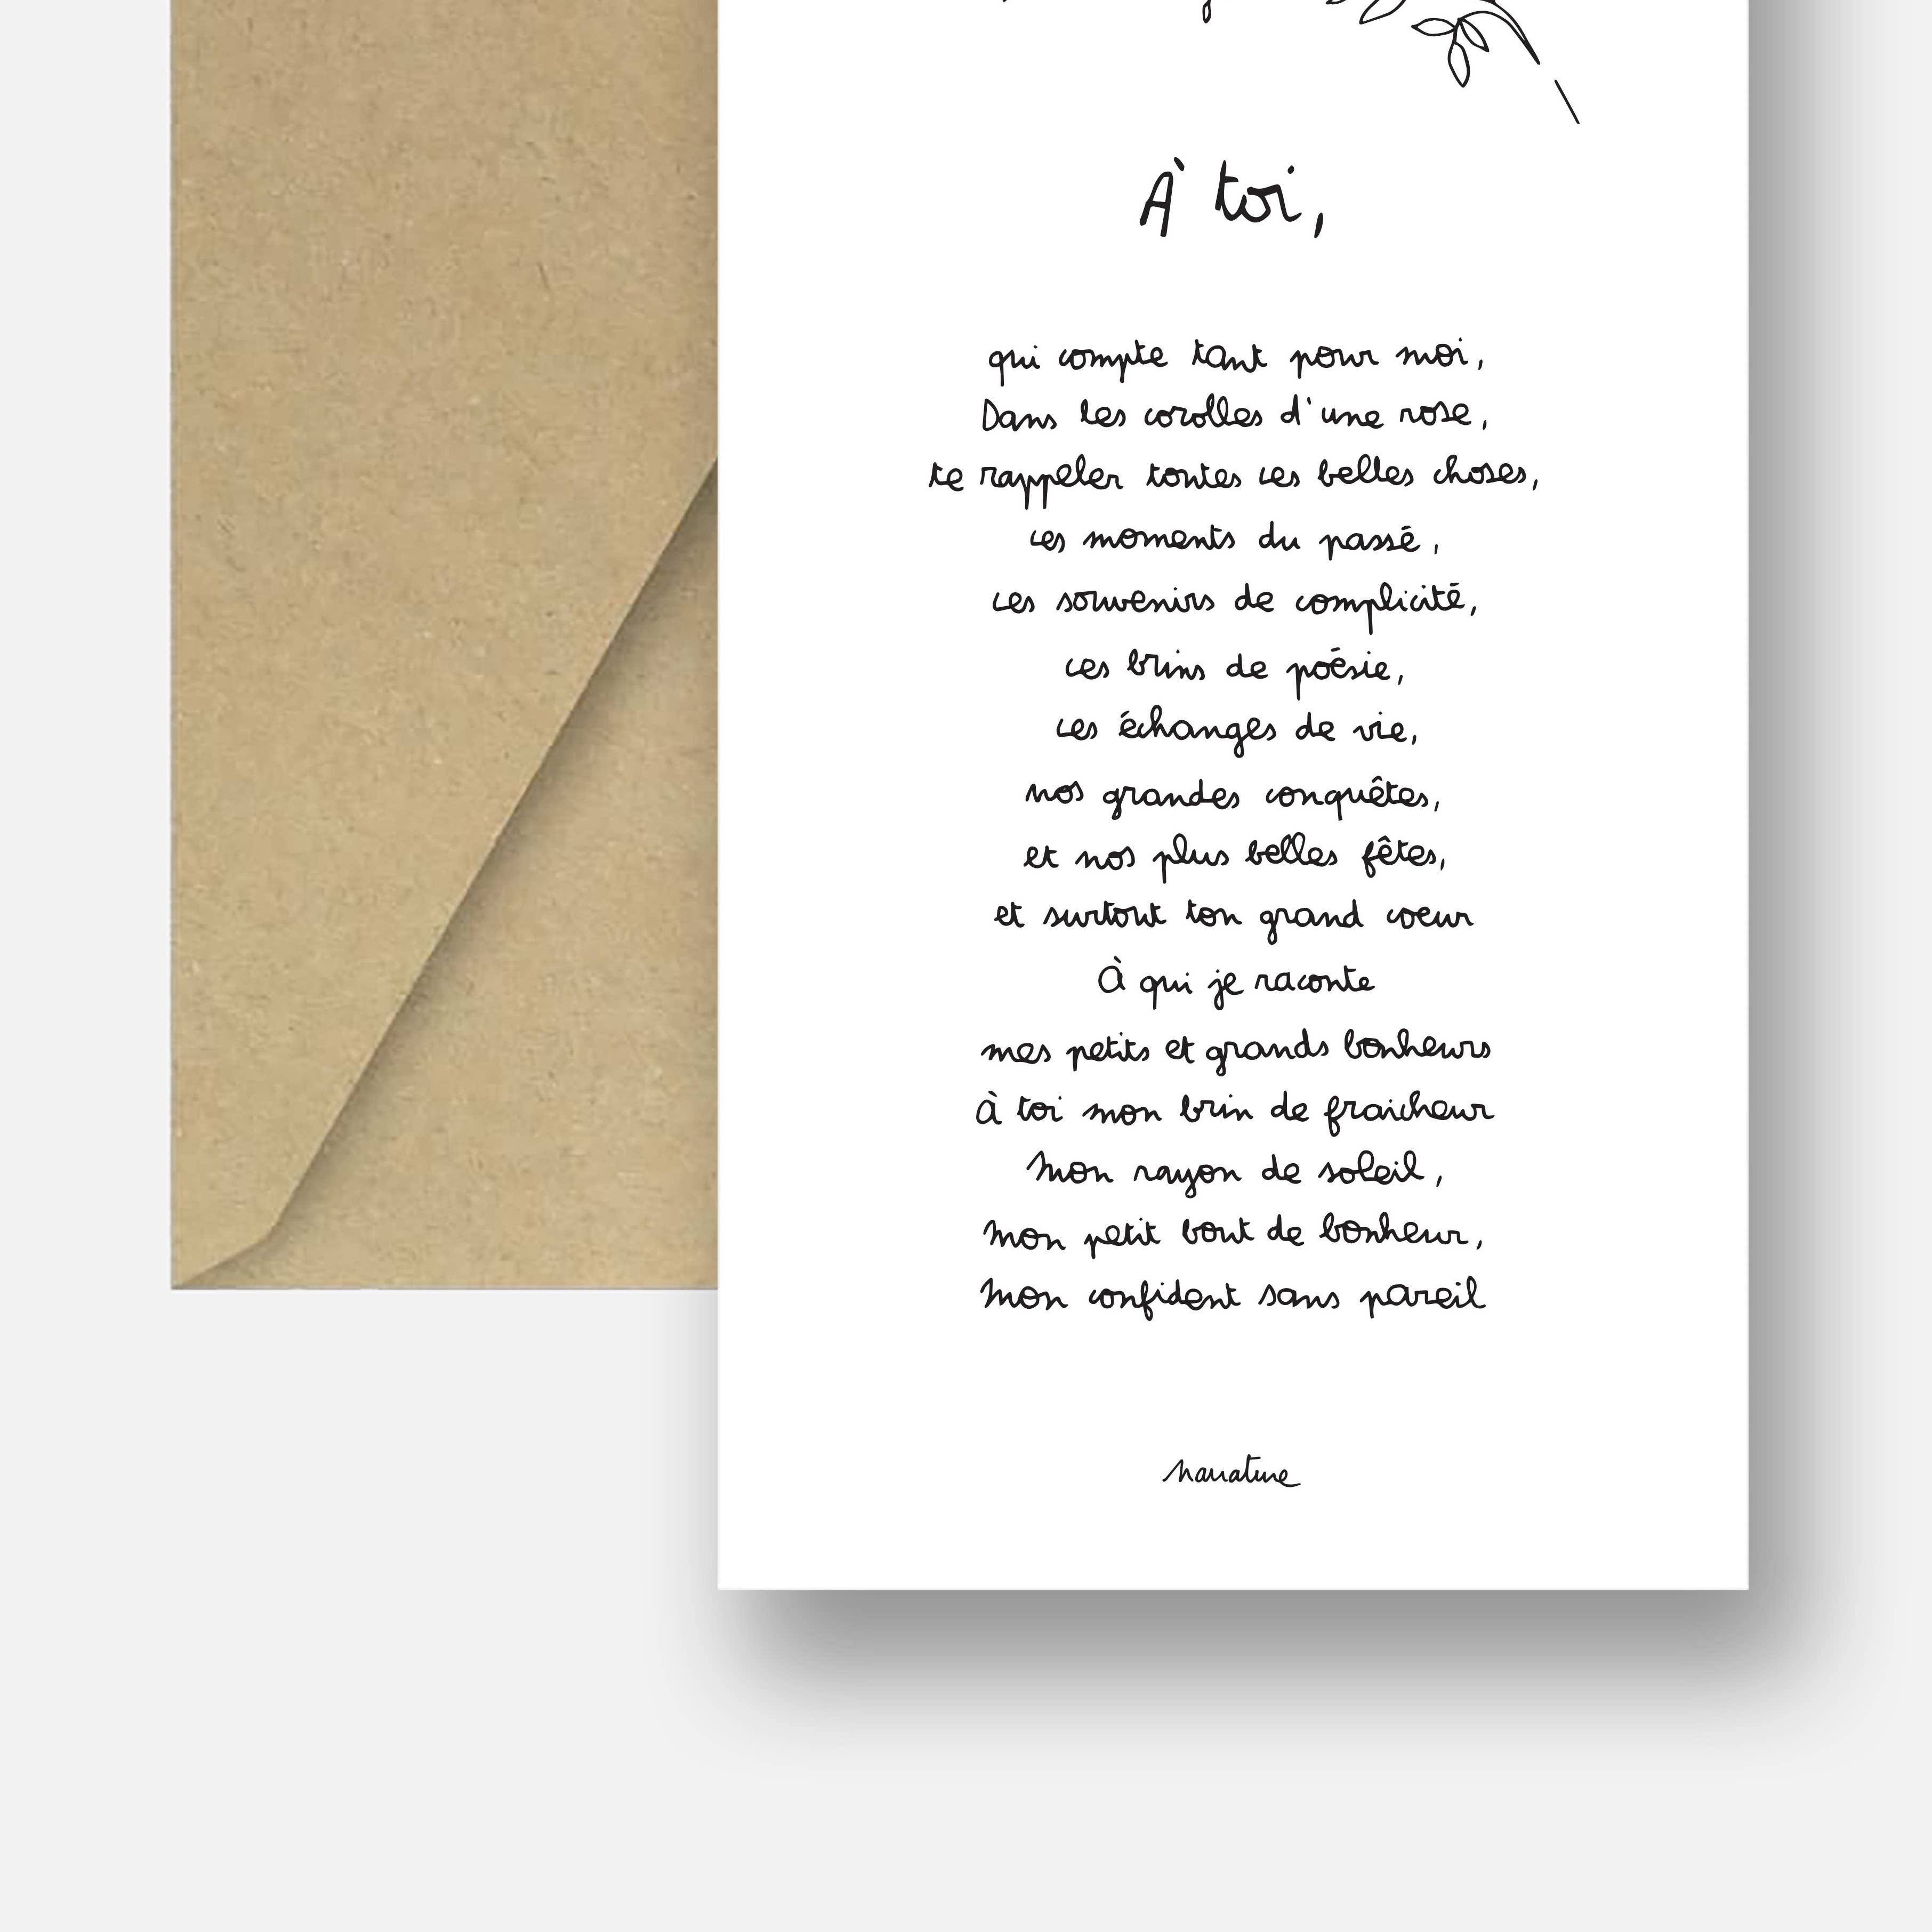 À toi,
qui compte tant pour moi,
Dans les corolles d'une rose,
te rappeler toutes ces belles choses,
ces moments du passé,
ces souvenirs de complicité,
ces brins de poésie,
ces échanges de vie,
nos grandes conquêtes,
et nos plus belles fêtes,
et surtout ton grand coeur
À qui je raconte
mes petits et grands bonheurs
à toi mon brin de fraicheur
mon rayon de soleil,
mon petit bout de bonheur,
mon confident sans pareil